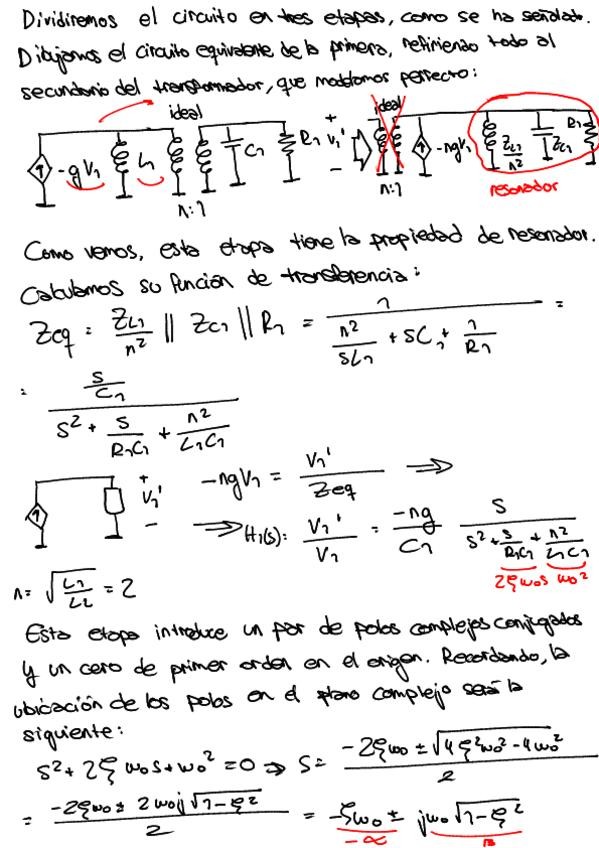 Dividiremos el circuito en tres etapas, como se ha señalado.
Dibujamos el circuito equivalente de la primera, refiriendo todo al
secundario del transformador, que modelamos perfecto:
ideal ideal
-gV₁ L₁ C₁ R₁ + V₁' - -ngV₁ Z_L₁/n² Z_C₁ R₁
n:1 n:1 resonador
Como vemos, esta etapa tiene la propiedad de resonador.
Calculamos su función de transferencia:
Zeq = Z_L₁/n² || Z_C₁ || R₁ = 1/(n²/(SL₁) + SC₁ + 1/R₁) =
= (S/C₁)/(S² + S/(R₁C₁) + n²/(L₁C₁))
+ V₁' - -ngV₁ = V₁'/Zeq ⟹
⟹ H₁(s): V₁'/V₁ = -ng/C₁ S/(S² + S/(R₁C₁) + n²/(L₁C₁))
2ξω₀S ω₀²
n = √(L₁/L₂) = 2
Esta etapa introduce un par de polos complejos conjugados
y un cero de primer orden en el origen. Recordando, la
ubicación de los polos en el plano complejo será la
siguiente:
S² + 2ξω₀S + ω₀² = 0 ⇒ S = (-2ξω₀ ± √(4ξ²ω₀² - 4ω₀²))/2
= (-2ξω₀ ± 2ω₀j√(1-ξ²))/2 = -ξω₀ ± jω₀√(1-ξ²)
-α β